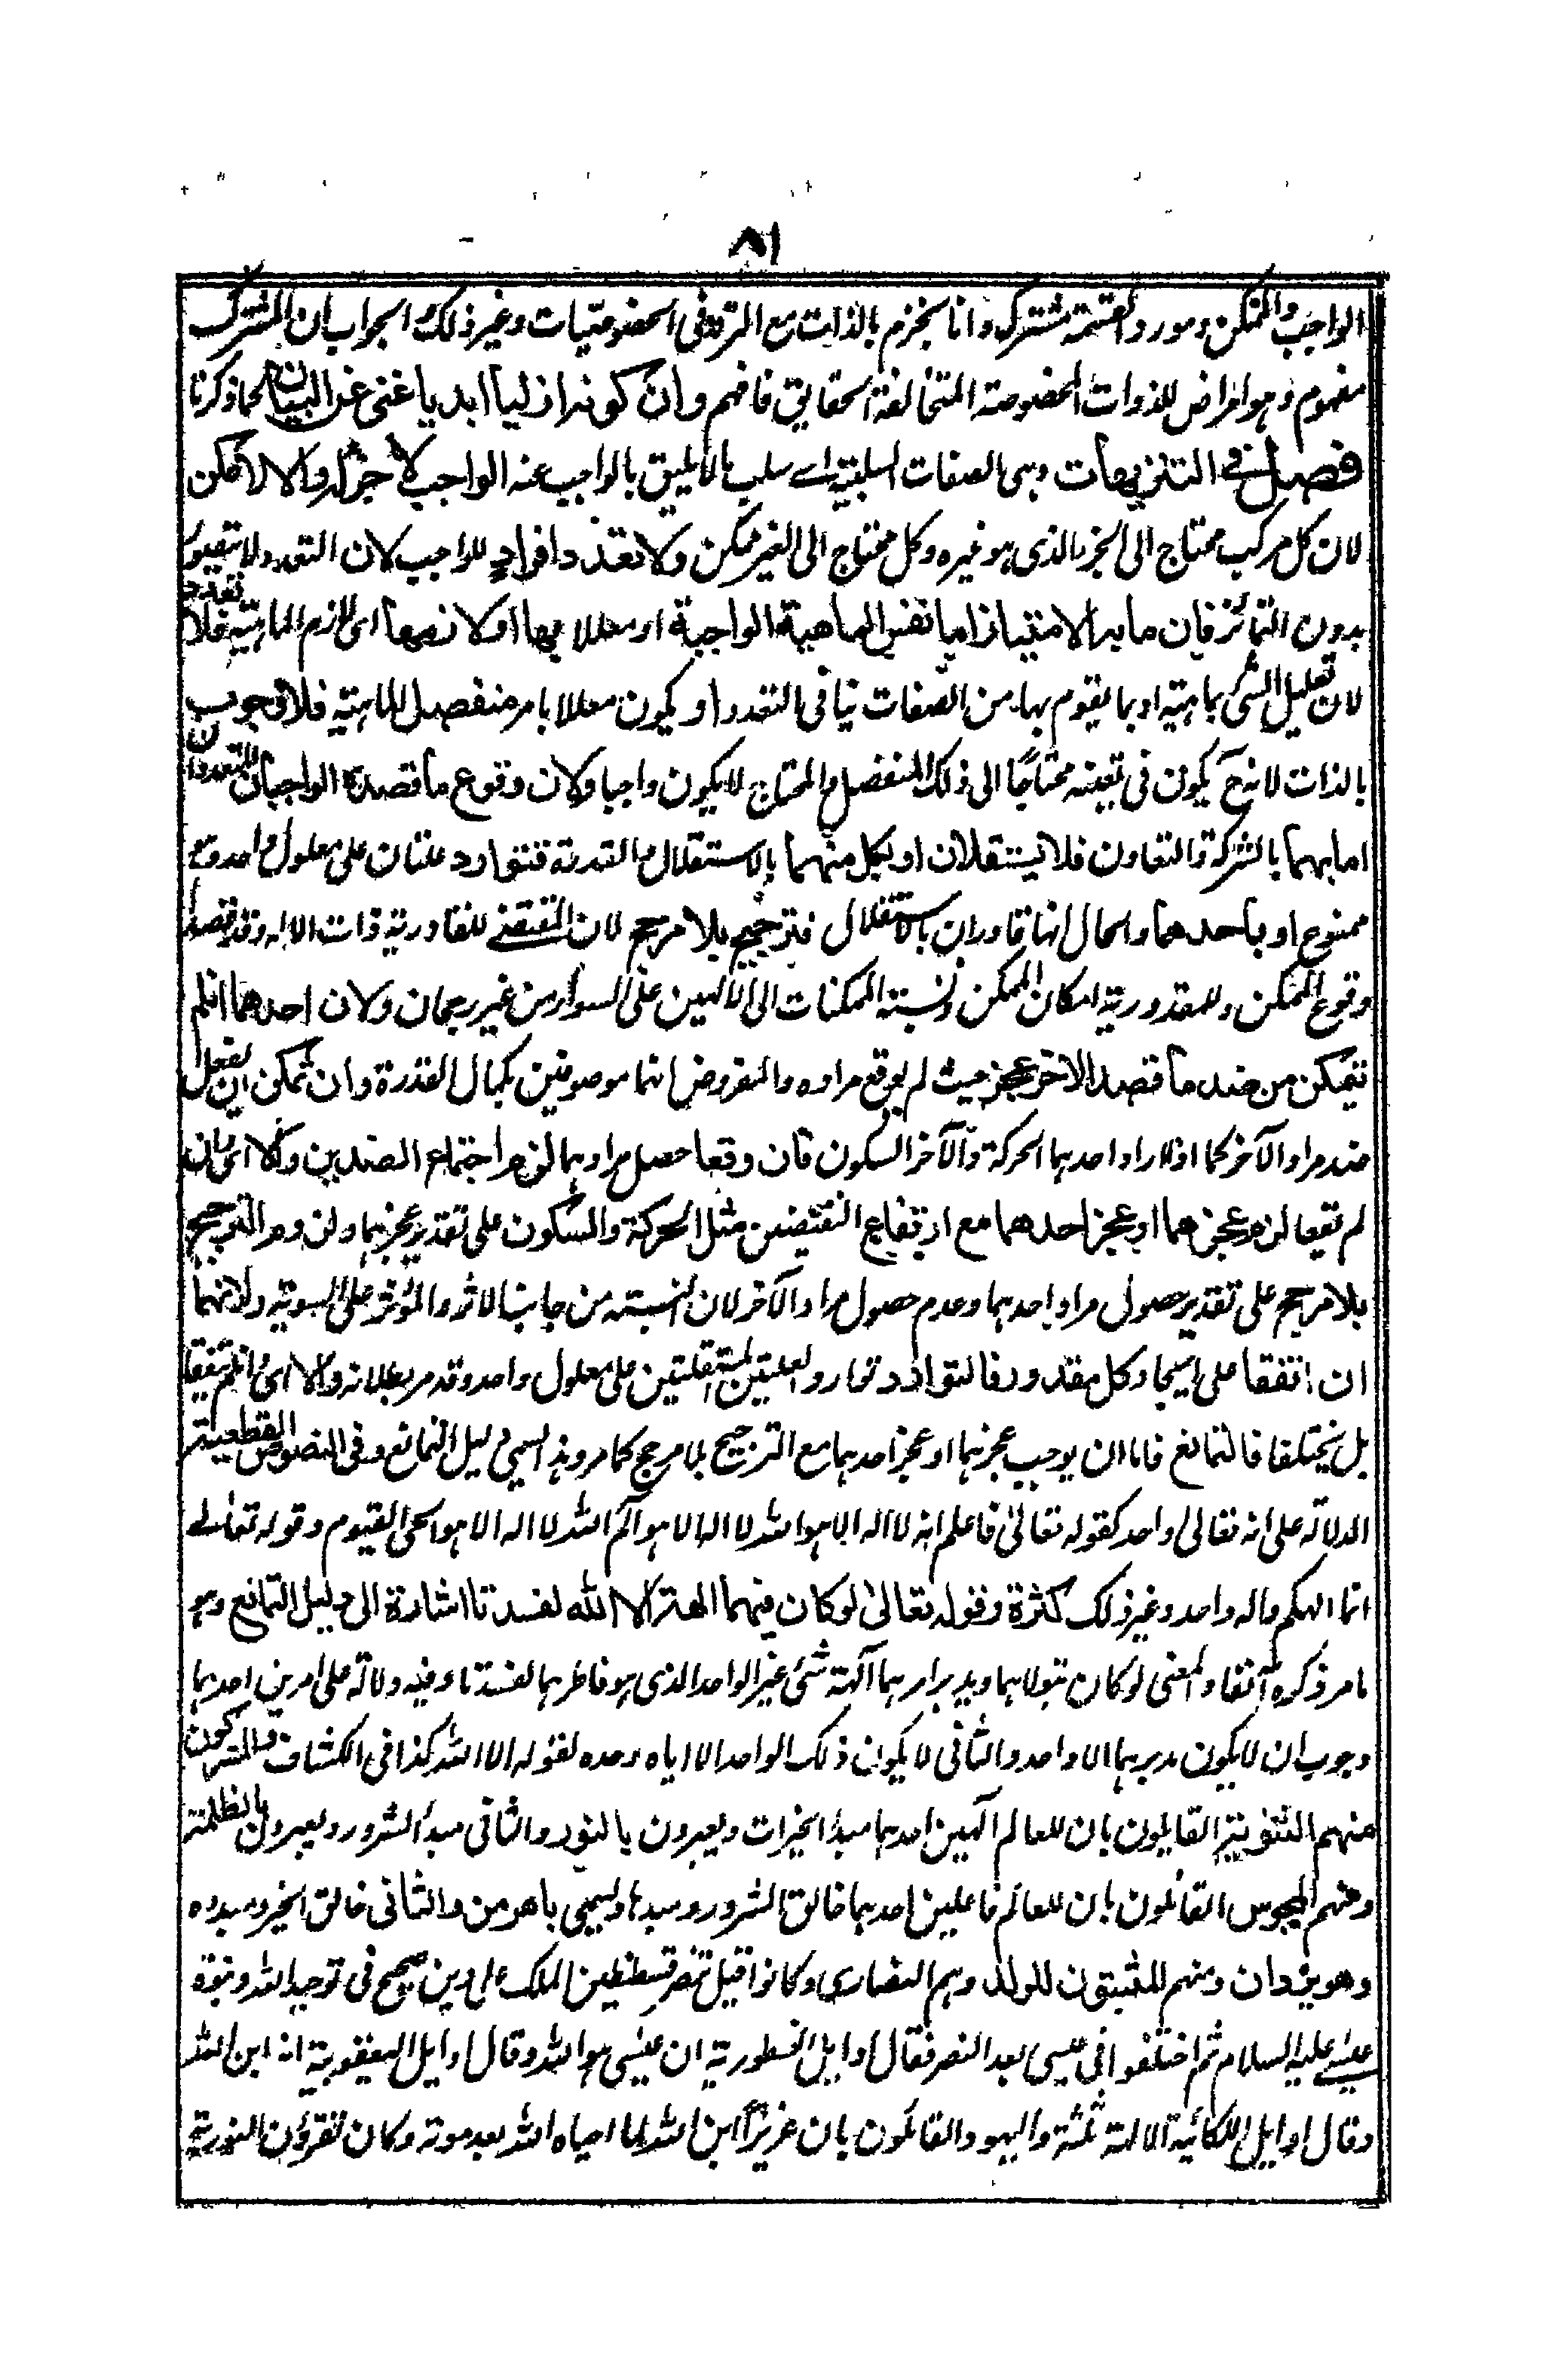 ٨١
الواجب والممكن ومورد القسمة مشترك وانا نجزم بالذات مع التردد فى الخصوصيات وغير ذلك والجواب ان المشترك
مفهوم وهو اعراض للذوات المخصوصة المتخالفة الحقايق فافهم وان كونه ازليا ابديا غنى عن البيان لما ذكرنا
فصل فى التنزيهات وهى الصفات السلبية اے سلب ما لا يليق بالواجب عنه الواجب لا جزء له والا لامكن
لان كل مركب محتاج الى الجزء الذى هو غيره وكل محتاج الى الغير ممكن ولا تعدد افراد للواجب لان التعدد لا يتصور
بدون التمائز فان ما به الامتياز اما نفس الماهية الواجبة او معللا بها او لازمها اى لازم الماهية فلا تعدد
لان تعليل الشئ بماهيته او بما يقوم بها من الصفات ينافى التعدد او يكون معللا بامر منفصل الماهية فلا وجوب
بالذات لانه ح يكون فى تعينه محتاجًا الى ذلك المنفصل والمحتاج لا يكون واجبا ولان وقوع ما قصده الواجبان المتعددان
اما بهما بالشركة والتعاون فلا يستقلان او بكل منهما بالاستقلال والقدرة فتتوارد علتان على معلول واحد وهو
ممنوع او باحدهما والحال انها قادران بالاستقلال فترجيح بلا مرجح لان المقتضى للقادرية ذات الاله وقد قصدا
وقوع الممكن وللمقدورية امكان الممكن ونسبته الممكنات الى الالهين على السواء من غير رجحان ولان احدهما ان لم
يتمكن من ضد ما قصده الاخر عجز حيث لم يوقع مراده والمفروض انهما موصوفين بكمال القدرة وان تمكن ان يفعل
ضد مراد الآخر كما اذا اراد احدهما الحركة والآخر السكون فان وقعا حصل مرادهما لزم اجتماع الضدين والا اى بان
لم يقعا لزم عجزهما او عجز احدهما مع ارتفاع النقيضين مثل الحركة والسكون على تقدير عجزهما ولزوم الترجيح
بلا مرجح على تقدير حصول مراد احدهما وعدم حصول مراد الآخر لان النسبته من جانب الاثر والمؤثر على السوية ولانهما
ان اتفقا على ايجاد كل مقدور فالتوارد توارد العلتين المستقلتين على معلول واحد وقد مر بطلانه والا اى ان لم يتفقا
بل يختلفا فالتمانع فاما ان يوجب عجزهما او عجز احدهما مع الترجيح بلا مرجح كما مر وهذا يسمى دليل التمانع وفى النصوص القطعية
الدلالة على انه تعالى واحد كقوله تعالى فاعلم انه لا اله الا هو الله لا اله الا هو آلم الله لا اله الا هو الحى القيوم وقوله تعالے
انما الهكم واله واحد وغير ذلك كثرة وقوله تعالى لو كان فيهما الهة الا الله لفسدتا اشارة الى دليل التمانع وهو
ما مر ذكره آنفا والمعنى لو كان يتولاهما ويدبر امرهما آلهة شئ غير الواحد الذى هو فاطرهما لفسدتا وفيه دلالة على امرين احدهما
وجوب ان لا يكون مدبرهما الا واحد والثانى لا يكون ذلك الواحد الا اياه وحده لقوله الا الله كذا فى الكشاف والمشركون
منهم الثنوية القايلون بان للعالم الهين احدهما مبدأ الخيرات ويعبرون بالنور والثانى مبدأ الشرور ويعبرون بالظلمة
ومنهم المجوس القائلون بان للعالم فاعلين احدهما خالق الشرور ومبدءا ويسمى باهرمن والثانى خالق الخير ومبدءه
وهو يزدان ومنهم المثبتون للولد وهم النصارى وكانوا قبل تنصر قسطنطين الملك على دين صحيح فى توحيد الله ونبوة
عيسے عليه السلام ثم اختلفوا فى عيسى بعد التنصر فقال اوايل النسطورية ان عيسى هو الله وقال اوايل اليعقوبية انه ابن الله
وقال اوايل الملكائية الالهة ثلثة واليهود القائلون بان عزيرًا ابن الله لما احياه الله بعد موته وكان يقرؤن التورية